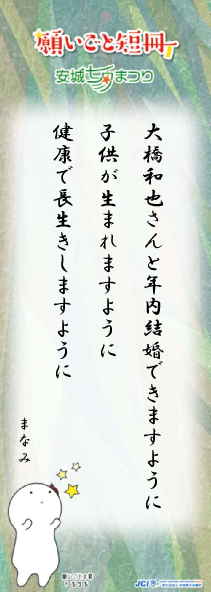 願いごと短冊
安城七夕まつり
大橋和也さんと年内結婚できますように
子供が生まれますように
健康で長生きしますように
まなみ
JCI